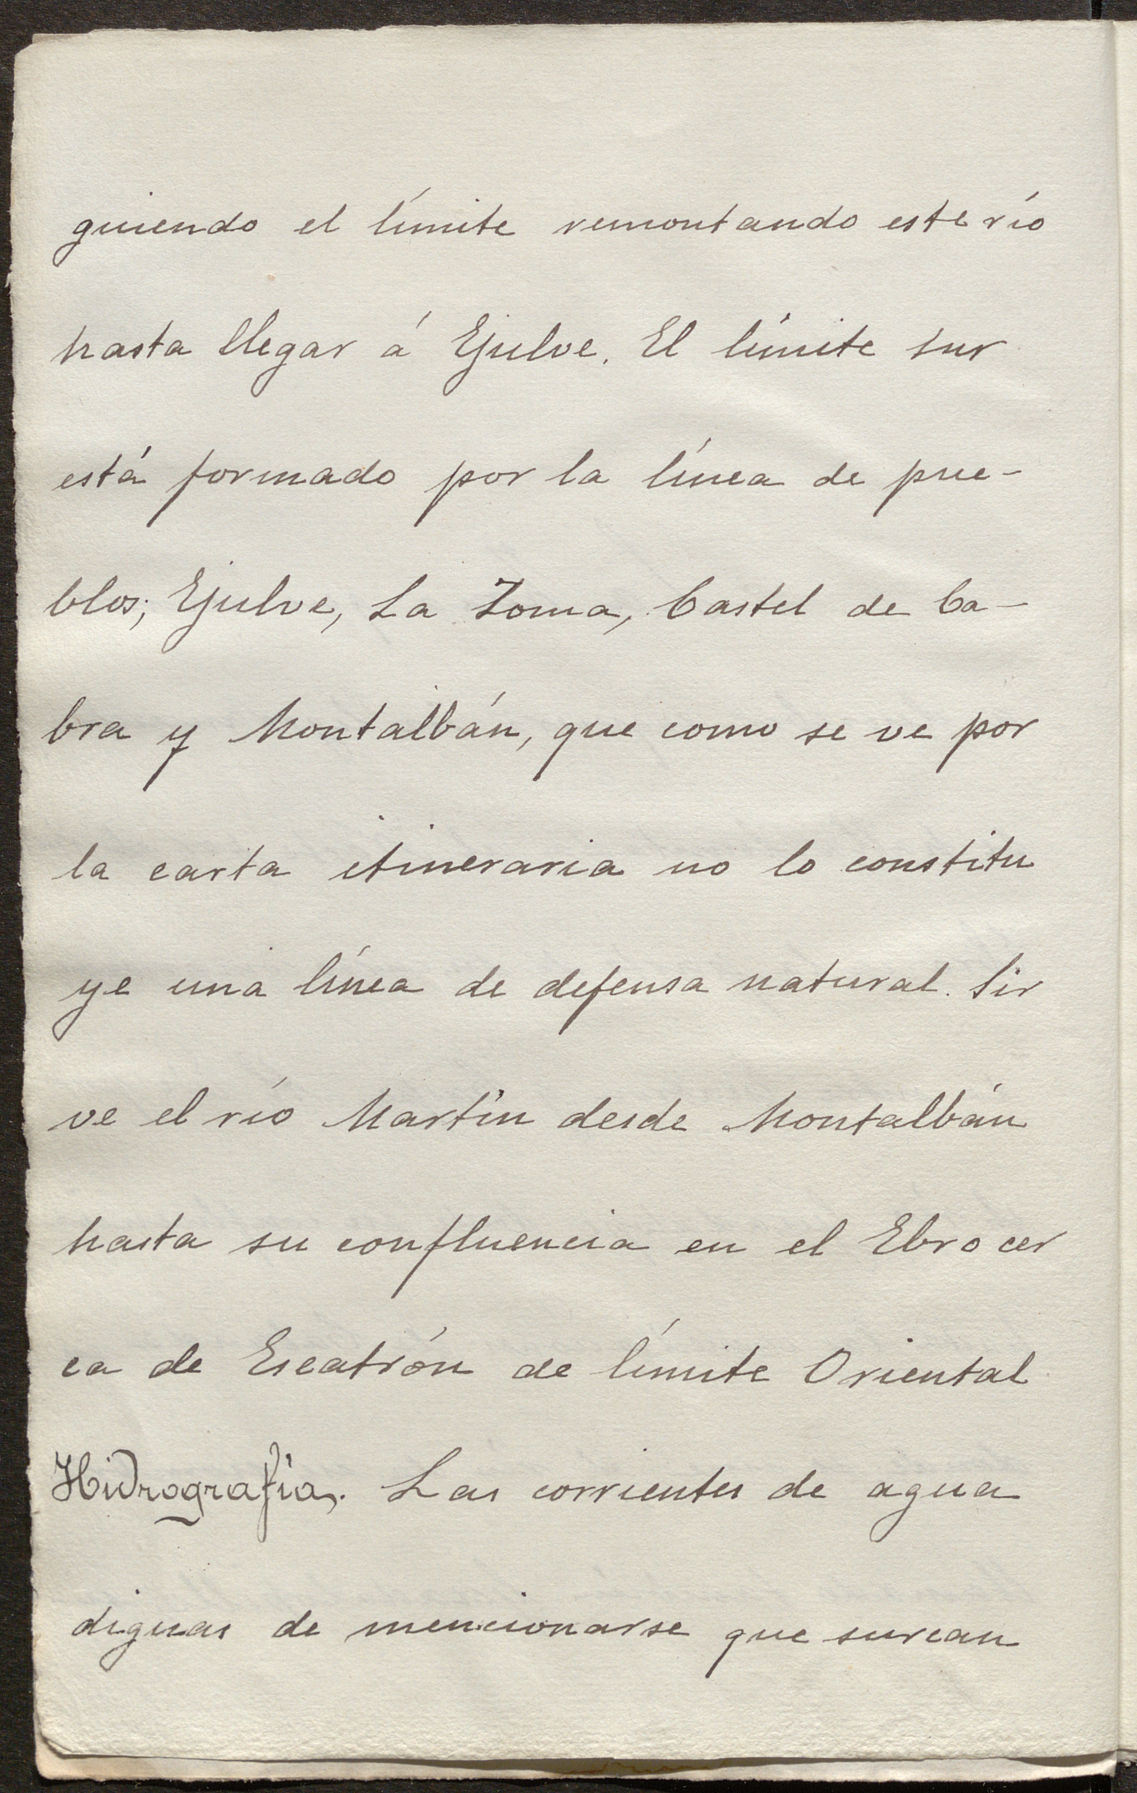 guiendo el límite remontando este río
hasta llegar á Ejulve. El límite sur
está formado por la línea de pue-
blos; Ejulve, La Zoma, Castel de Ca-
bra y Montalbán, que como se ve por
la carta itineraria no lo constitu
ye una línea de defensa natural. Sir
ve el río Martín desde Montalbán
hasta su confluencia en el Ebro cer
ca de Escatrón de límite Oriental
Hidrografía. Las corrientes de agua
dignas de mencionarse que surcan